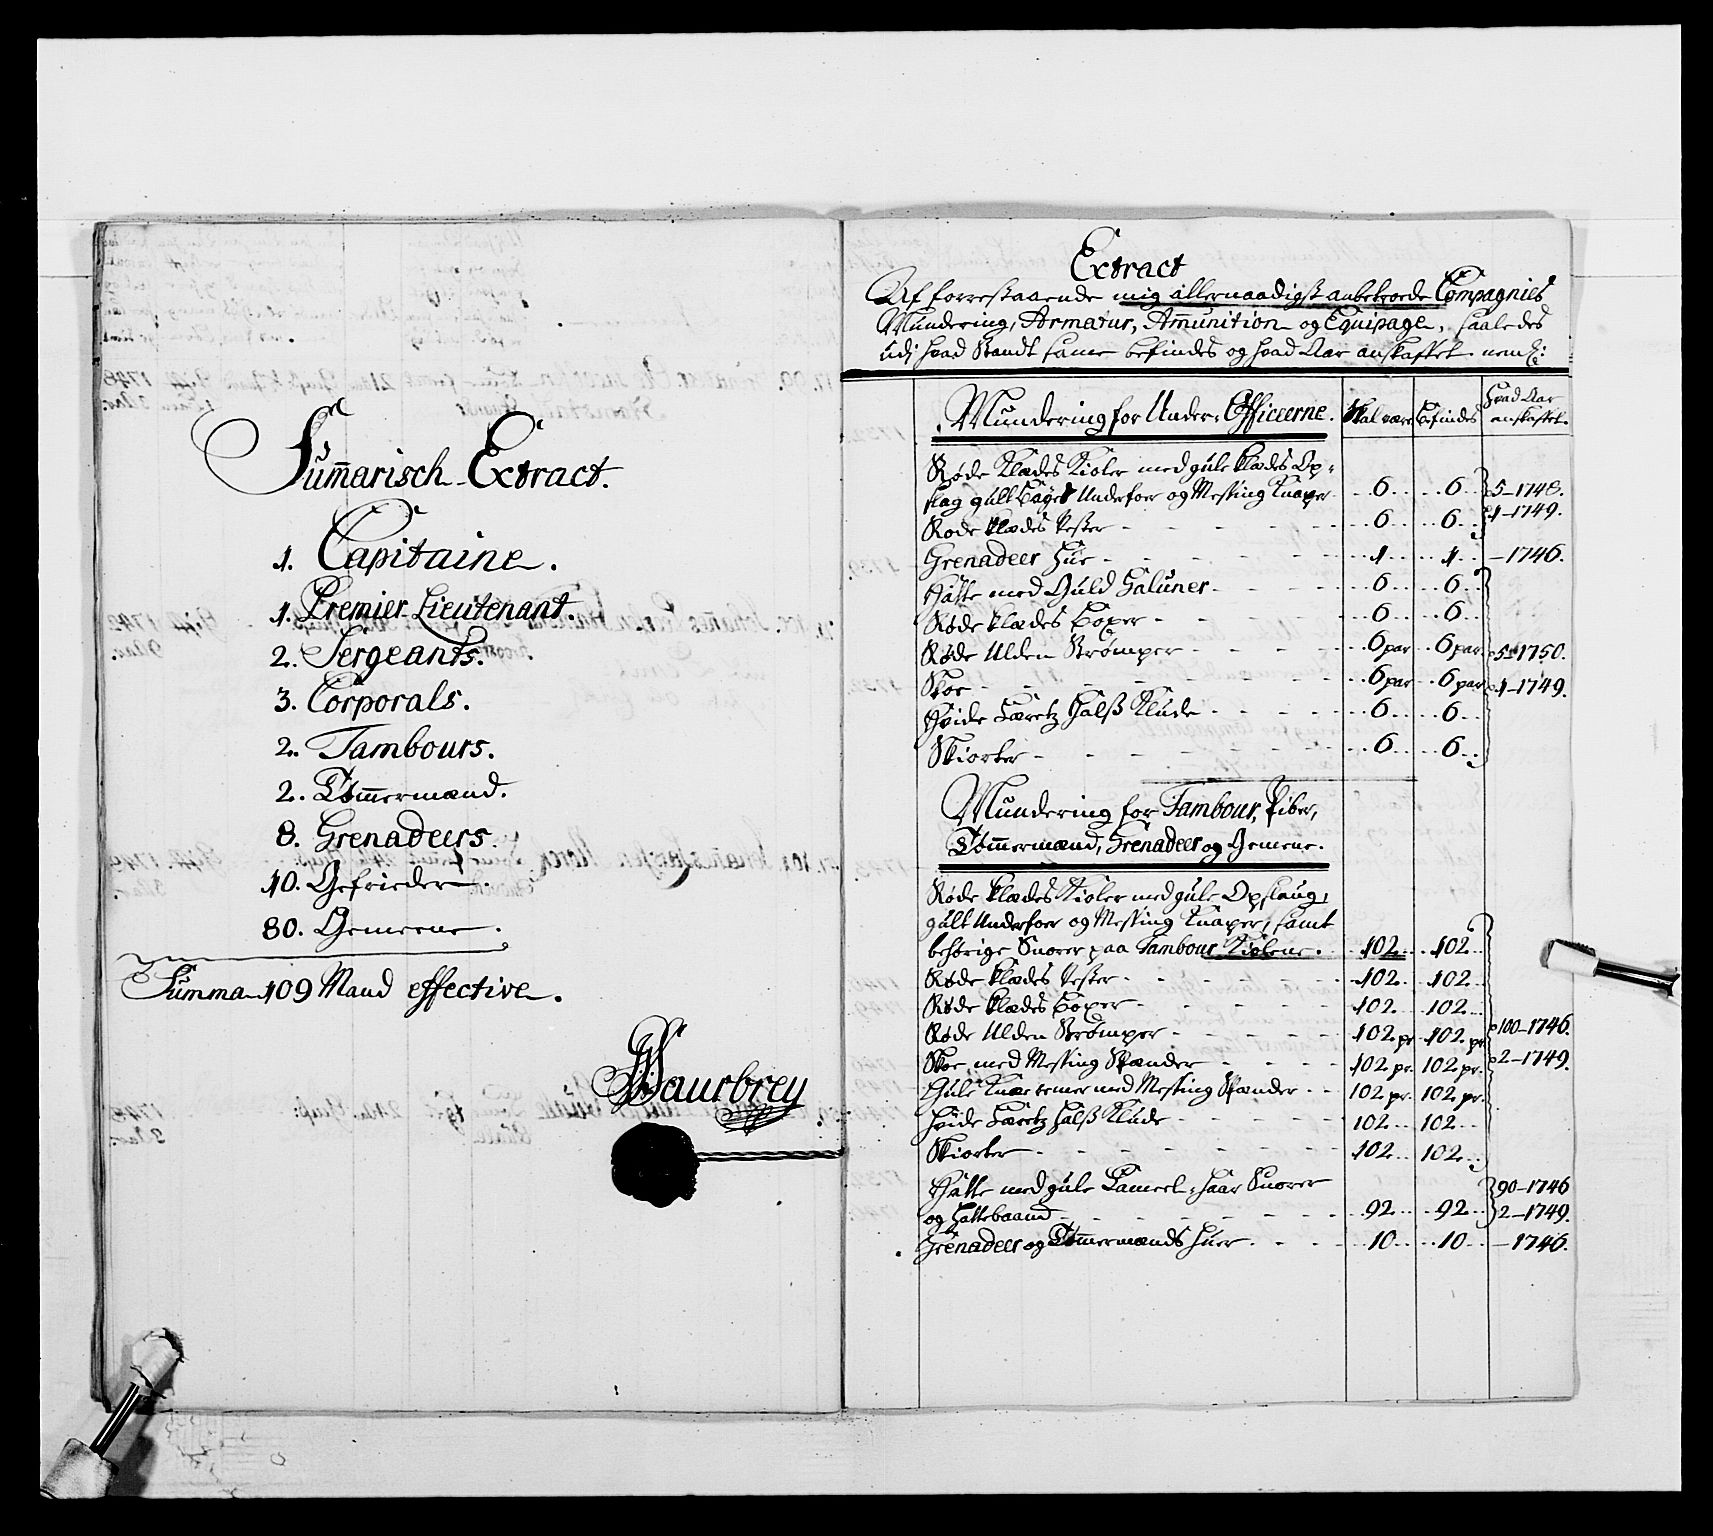 Summarisch Extract.
1. Capitaine.
1. Premier Lieutenant.
2. Sergeants.
3. Corporals.
2. Tambours.
2. Tømmermænd.
8. Grenadeers.
10. Gefrieder.
80. Gemeene.
Summa 109 Mand effective.
Saurbrey
Extract
Af forrestaaende mig allernaadigst anbetroede Compagnies
Mundering, Armatur, Amunition og Equipage, saaledes
udj hvad Standt same befindes og hvad Aar anskaffet neml:
Mundering for Under-Officeerne. Skal være Befindes Hvad Aar anskaffet.
Røde Klædes Kioler med gule Klædes Op-
slag gult Bayes Underfoer og Messing Knaper 6 6 5-1748.
Røde Klædes Vester 6 6 1-1749.
Grenadeer Hue 1 1 -1746.
Hatte med Guld Galuner 6 6
Røde Klædes Boxer 6 6
Røde Ulden Strømper 6 par 6 par 5-1750.
Skoe 6 par 6 par 1-1749.
Hvide Halss Klude 6 6
Skiorter 6 6
Mundering for Tambour, Piber,
Tømmermænd, Grenadeer og Gemene.
Røde Klædes Kioler med gule Opslaug,
gult Underfoer og Messing Knaper, samt
behørige Snorer paa Tambour Kiolene. 102 102
Røde Klædes Vester 102 102
Røde Klædes Boxer 102 102
Røde Ulden Strømper 102 pr 102 pr 100-1746.
Skoe med Messing Spænder 102 pr. 102 pr. 2-1749.
Gule Knæe remer med Messing Spænder 102 pr. 102 pr.
Hvide Halss Klude 102 102
Skiorter 102 102
Hatte med gule Cameel-haar Snorer 90-1746
og Hattebaand 92 92 2-1749.
Grenadeer og Tømmermænds Huer 10 10 -1746.